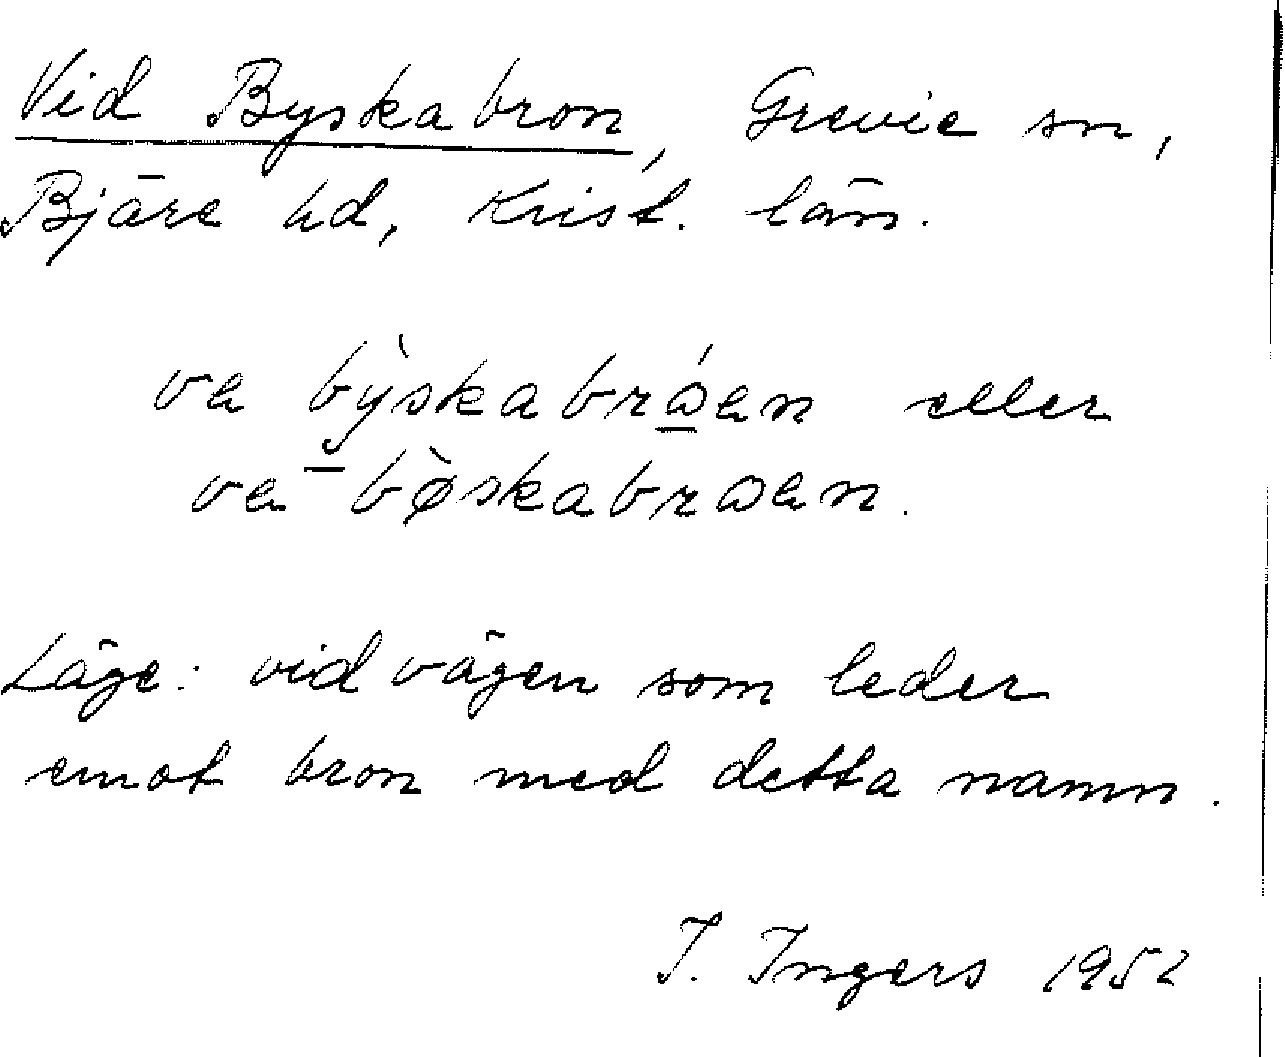 Vid Byskabron, Grevie sn,
Bjäre hd, Krist. län.
va bỳskabrɷ́en eller
va bø̀skabrɷen.
Läge: vid vägen som leder
emot bron med detta namn.
I. Ingers 1952